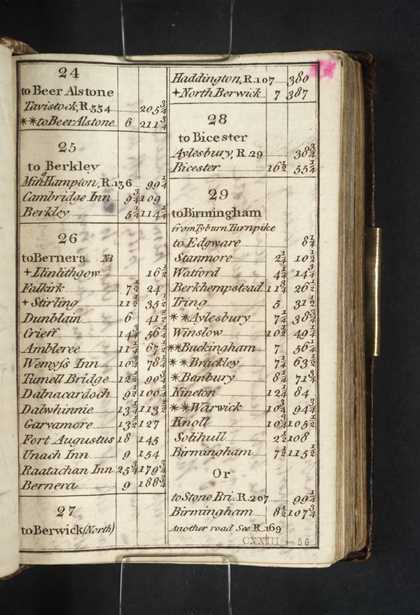 24
to Beer Alstone
Tavistock, R.554 205¾
**to Beer Alstone 6 211¾
25
to Berkley
Min. Hampton, R.136 99¼
Cambridge Inn 9¾ 109
Berkley 5¼ 114¼
26
to Bernera
+Linlithgow 16½
Falkirk 7½ 24
+Stirling 11½ 35½
Dunblain 6 41½
Crieff 14¾ 56¼
Ambleree 11¼ 67½
Wemyss Inn 78
Tumell Bridge
Dalnacardoch
Dalwhinnie
Garvamore 13½ 127
Fort Augustus 18 145
Unach Inn 9 154
Raatachan Inn 25¾ 179¾
Bernera 9 188¾
27
to Berwick (North)
Haddington, R.107 380
+North Berwick 7 387
28
to Bicester
Aylesbury, R.29 38¾
Bicester 16½ 55¼
29
to Birmingham
from Tyburn Turnpike
to Edgware 8¼
Stanmore 2¼ 10½
Watford 4¼ 14¾
Berkhempstead 11¾ 26½
Tring 5 31½
**Aylesbury 7¼ 38¾
Winslow 10½ 49¼
**Buckingham 7 56¼
**Brackley 7¼ 63½
*Banbury 8¼ 71¾
Kineton 12¼ 84
**Warwick 10¼ 94¼
Knoll 10¾ 105½
Solihull 2½ 108
Birmingham 7½ 115½
Or
to Stone Bri. R.207 99¼
Birmingham 8½ 107¾
Another road See R.169
CXXIII - 56